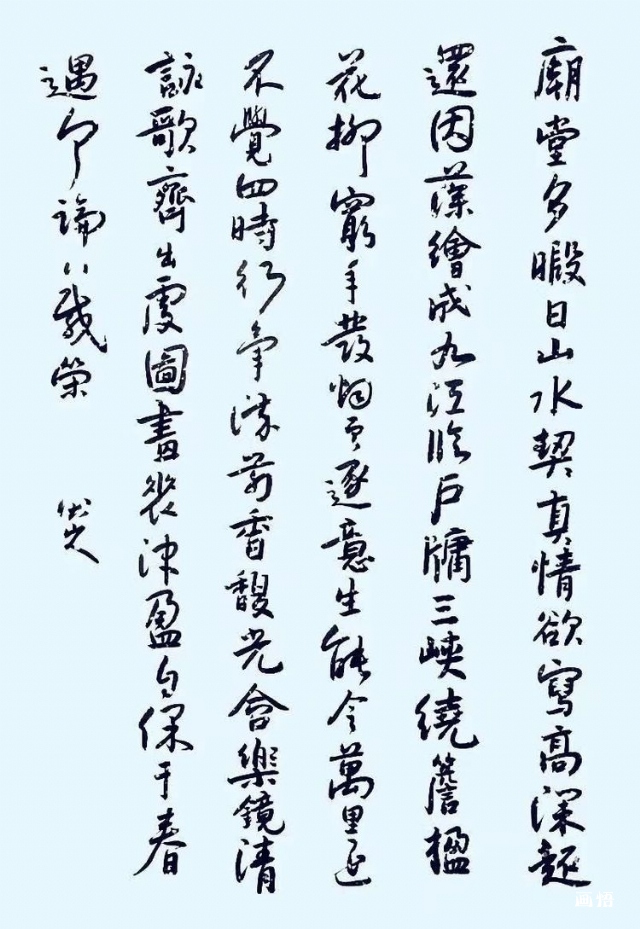 廟堂多暇日山水契真情欲寫高深趣
還因藻繪成九江臨戶牖三峽繞簷楹
花柳窮年發煙雲逐意生能令萬里近
不覺四時行氣染荀香馥光含樂鏡清
詠歌齊出處圖畫表沖盈自保千春
遇何論八載榮
畫悟